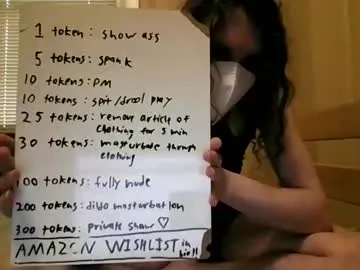 1 token: show ass
5 tokens: spank
10 tokens: PM
10 tokens: spit/drool play
25 tokens: remove article of
clothing for 5 min
30 tokens: masturbate through
clothing
100 tokens: fully nude
200 tokens: dildo masturbation
300 tokens: private show ♡
AMAZON WISHLIST in
bio!!